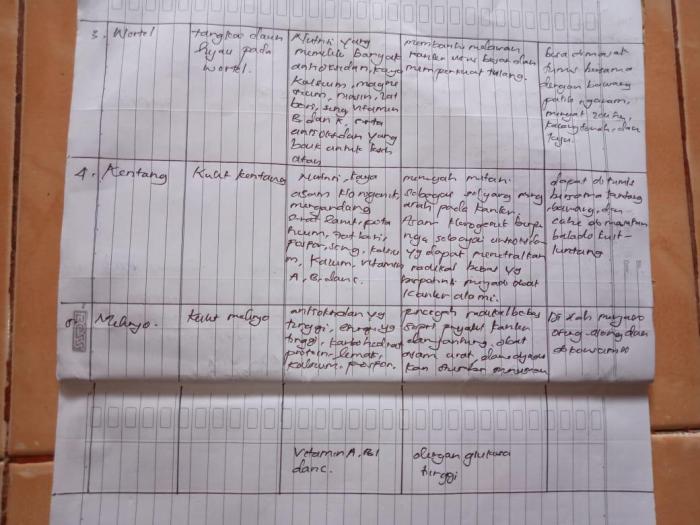 3. Wortel
tangkai daun
hijau pada
wortel.
Nutrisi yang
memiliki banyak
antioksidan, kaya
kalsium, magne
sium, niasin, zat
besi, seng, vitamin
B dan K, serta
antioksidan yang
baik untuk
membantu melawan
kanker usus besar dan
memperkuat tulang.
bisa dimasak
tumis bersama
dengan bawang
putih, garam,
minyak
kacang tanah, dan
keju.
4. Kentang
Kulit kentang
Nutrisi, kaya
asam klorogenik,
mengandung
serat
sium, zat besi,
fospor, seng, kalsiu
m, kalium, vitamin
A, B, dan C.
mencegah mutasi
sebagai sel yang meng
arah pada kanker.
Asam klorogenik
nga sebagai antioksidan
yg dapat menetralkan
radikal bebas yg
berpotensi menjadi obat
kanker alami.
dapat ditumis
bersama kentang
bawang, dan
cabe
balado kulit
kentang
5. Melinjo.
Kulit melinjo
antioksidan yg
tinggi, energi yg
tinggi, karbohidrat
protein, lemak,
kalsium, fospor,
pencegah radikal bebas
seperti penyakit kanker
dan jantung, obat
asam urat,
kan
Di
oseng-oseng, dan
Vitamin A, B1
dan C.
dengan glukosa
tinggi